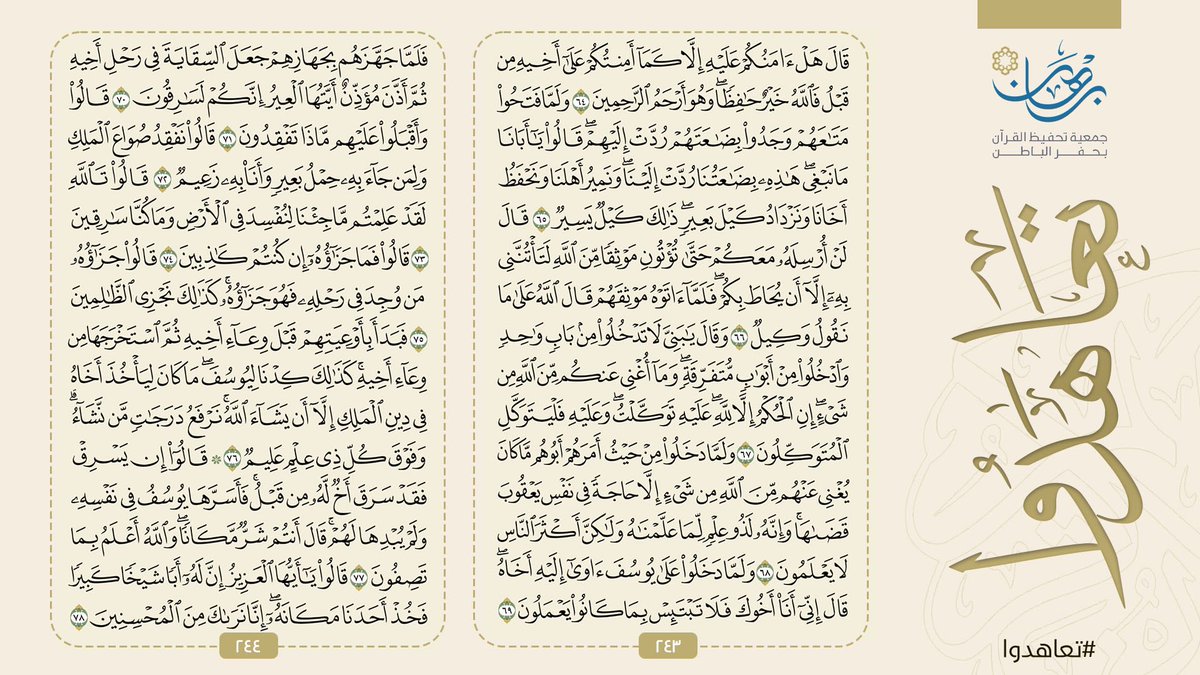 برهان
جمعية تحفيظ القرآن
بحفر الباطن
تعاهدوا
#تعاهدوا
قَالَ هَلْ ءَامَنُكُمْ عَلَيْهِ إِلَّا كَمَآ أَمِنتُكُمْ عَلَىٰٓ أَخِيهِ مِن
قَبْلُ فَٱللَّهُ خَيْرٌ حَٰفِظًا ۖ وَهُوَ أَرْحَمُ ٱلرَّٰحِمِينَ ٦٤ وَلَمَّا فَتَحُوا۟
مَتَٰعَهُمْ وَجَدُوا۟ بِضَٰعَتَهُمْ رُدَّتْ إِلَيْهِمْ ۖ قَالُوا۟ يَٰٓأَبَانَا
مَا نَبْغِى ۖ هَٰذِهِۦ بِضَٰعَتُنَا رُدَّتْ إِلَيْنَا ۖ وَنَمِيرُ أَهْلَنَا وَنَحْفَظُ
أَخَانَا وَنَزْدَادُ كَيْلَ بَعِيرٍ ۖ ذَٰلِكَ كَيْلٌ يَسِيرٌ ٦٥ قَالَ
لَنْ أُرْسِلَهُۥ مَعَكُمْ حَتَّىٰ تُؤْتُونِ مَوْثِقًا مِّنَ ٱللَّهِ لَتَأْتُنَّنِى
بِهِۦٓ إِلَّآ أَن يُحَاطَ بِكُمْ ۖ فَلَمَّآ ءَاتَوْهُ مَوْثِقَهُمْ قَالَ ٱللَّهُ عَلَىٰ مَا
نَقُولُ وَكِيلٌ ٦٦ وَقَالَ يَٰبَنِىَّ لَا تَدْخُلُوا۟ مِنۢ بَابٍ وَٰحِدٍ
وَٱدْخُلُوا۟ مِنْ أَبْوَٰبٍ مُّتَفَرِّقَةٍ ۖ وَمَآ أُغْنِى عَنكُم مِّنَ ٱللَّهِ مِن
شَىْءٍ ۖ إِنِ ٱلْحُكْمُ إِلَّا لِلَّهِ ۖ عَلَيْهِ تَوَكَّلْتُ ۖ وَعَلَيْهِ فَلْيَتَوَكَّلِ
ٱلْمُتَوَكِّلُونَ ٦٧ وَلَمَّا دَخَلُوا۟ مِنْ حَيْثُ أَمَرَهُمْ أَبُوهُم مَّا كَانَ
يُغْنِى عَنْهُم مِّنَ ٱللَّهِ مِن شَىْءٍ إِلَّا حَاجَةً فِى نَفْسِ يَعْقُوبَ
قَضَىٰهَا ۚ وَإِنَّهُۥ لَذُو عِلْمٍ لِّمَا عَلَّمْنَٰهُ وَلَٰكِنَّ أَكْثَرَ ٱلنَّاسِ
لَا يَعْلَمُونَ ٦٨ وَلَمَّا دَخَلُوا۟ عَلَىٰ يُوسُفَ ءَاوَىٰٓ إِلَيْهِ أَخَاهُ ۖ
قَالَ إِنِّىٓ أَنَا۠ أَخُوكَ فَلَا تَبْتَئِسْ بِمَا كَانُوا۟ يَعْمَلُونَ ٦٩
٢٤٣
فَلَمَّا جَهَّزَهُم بِجَهَازِهِمْ جَعَلَ ٱلسِّقَايَةَ فِى رَحْلِ أَخِيهِ
ثُمَّ أَذَّنَ مُؤَذِّنٌ أَيَّتُهَا ٱلْعِيرُ إِنَّكُمْ لَسَٰرِقُونَ ٧٠ قَالُوا۟
وَأَقْبَلُوا۟ عَلَيْهِم مَّاذَا تَفْقِدُونَ ٧١ قَالُوا۟ نَفْقِدُ صُوَاعَ ٱلْمَلِكِ
وَلِمَن جَآءَ بِهِۦ حِمْلُ بَعِيرٍ وَأَنَا۠ بِهِۦ زَعِيمٌ ٧٢ قَالُوا۟ تَٱللَّهِ
لَقَدْ عَلِمْتُم مَّا جِئْنَا لِنُفْسِدَ فِى ٱلْأَرْضِ وَمَا كُنَّا سَٰرِقِينَ
٧٣ قَالُوا۟ فَمَا جَزَٰٓؤُهُۥٓ إِن كُنتُمْ كَٰذِبِينَ ٧٤ قَالُوا۟ جَزَٰٓؤُهُۥ
مَن وُجِدَ فِى رَحْلِهِۦ فَهُوَ جَزَٰٓؤُهُۥ ۚ كَذَٰلِكَ نَجْزِى ٱلظَّٰلِمِينَ
٧٥ فَبَدَأَ بِأَوْعِيَتِهِمْ قَبْلَ وِعَآءِ أَخِيهِ ثُمَّ ٱسْتَخْرَجَهَا مِن
وِعَآءِ أَخِيهِ ۚ كَذَٰلِكَ كِدْنَا لِيُوسُفَ ۖ مَا كَانَ لِيَأْخُذَ أَخَاهُ
فِى دِينِ ٱلْمَلِكِ إِلَّآ أَن يَشَآءَ ٱللَّهُ ۚ نَرْفَعُ دَرَجَٰتٍ مَّن نَّشَآءُ ۗ
وَفَوْقَ كُلِّ ذِى عِلْمٍ عَلِيمٌ ٧٦ ۞ قَالُوٓا۟ إِن يَسْرِقْ
فَقَدْ سَرَقَ أَخٌ لَّهُۥ مِن قَبْلُ ۚ فَأَسَرَّهَا يُوسُفُ فِى نَفْسِهِۦ
وَلَمْ يُبْدِهَا لَهُمْ ۚ قَالَ أَنتُمْ شَرٌّ مَّكَانًا ۖ وَٱللَّهُ أَعْلَمُ بِمَا
تَصِفُونَ ٧٧ قَالُوا۟ يَٰٓأَيُّهَا ٱلْعَزِيزُ إِنَّ لَهُۥٓ أَبًا شَيْخًا كَبِيرًا
فَخُذْ أَحَدَنَا مَكَانَهُۥٓ ۖ إِنَّا نَرَىٰكَ مِنَ ٱلْمُحْسِنِينَ ٧٨
٢٤٤